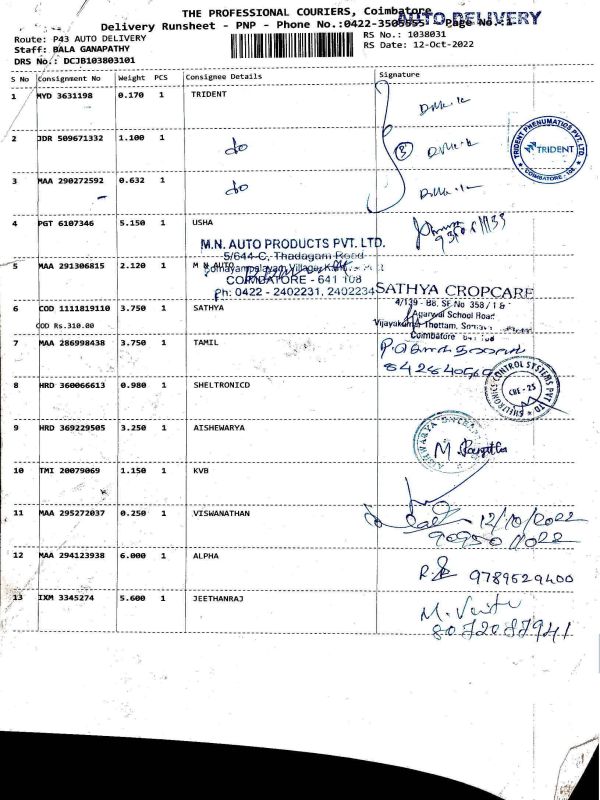 THE PROFESSIONAL COURIERS, Coimbatore
AUTO DELIVERY
Delivery Runsheet - PNP - Phone No.:0422-3505555 Page No.:1
Route: P43 AUTO DELIVERY
RS No.: 1038031
Staff: BALA GANAPATHY
RS Date: 12-Oct-2022
DRS No.: DCJB103803101
S No Consignment No Weight PCS Consignee Details Signature
1 MYD 3631198 0.170 1 TRIDENT
2 JDR 509671332 1.100 1 do
3 MAA 290272592 0.632 1 do
TRIDENT PHENUMATICS PVT. LTD.
TRIDENT
COIMBATORE
4 PGT 6107346 5.150 1 USHA
M.N. AUTO PRODUCTS PVT. LTD.
5/644-C, Thadagam Road
5 MAA 291306815 2.120 1 M N AUTO
COIMBATORE - 641 108
Ph: 0422 - 2402231, 2402234
SATHYA CROPCARE
4/139 - B8, SF No 358 / 1 &
6 COD 1111819110 3.750 1 SATHYA
Agarwal School Road
COD Rs.310.00
Vijayakumar Thottam,
Coimbatore 641 108
7 MAA 286998438 3.750 1 TAMIL
8 HRD 360066613 0.980 1 SHELTRONICD
SHELTRONICS CONTROL SYSTEMS PVT LTD
CBE - 25
9 HRD 369229505 3.250 1 AISHEWARYA
10 TMI 20079069 1.150 1 KVB
11 MAA 295272037 0.250 1 VISWANATHAN
12/10/2022
12 MAA 294123938 6.000 1 ALPHA
9789529400
13 IXM 3345274 5.600 1 JEETHANRAJ
8072087941